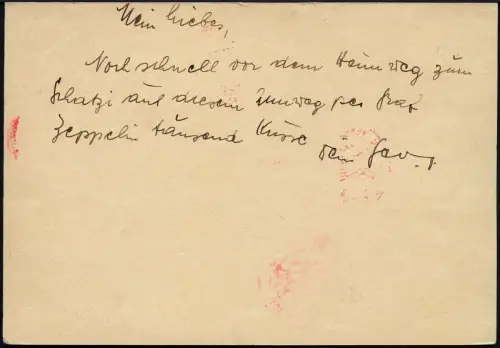 Mein liebes,
Noch schnell vor dem Heimweg zum
Schatzi auf diesem Umweg per Graf
Zeppelin tausend Küsse dein